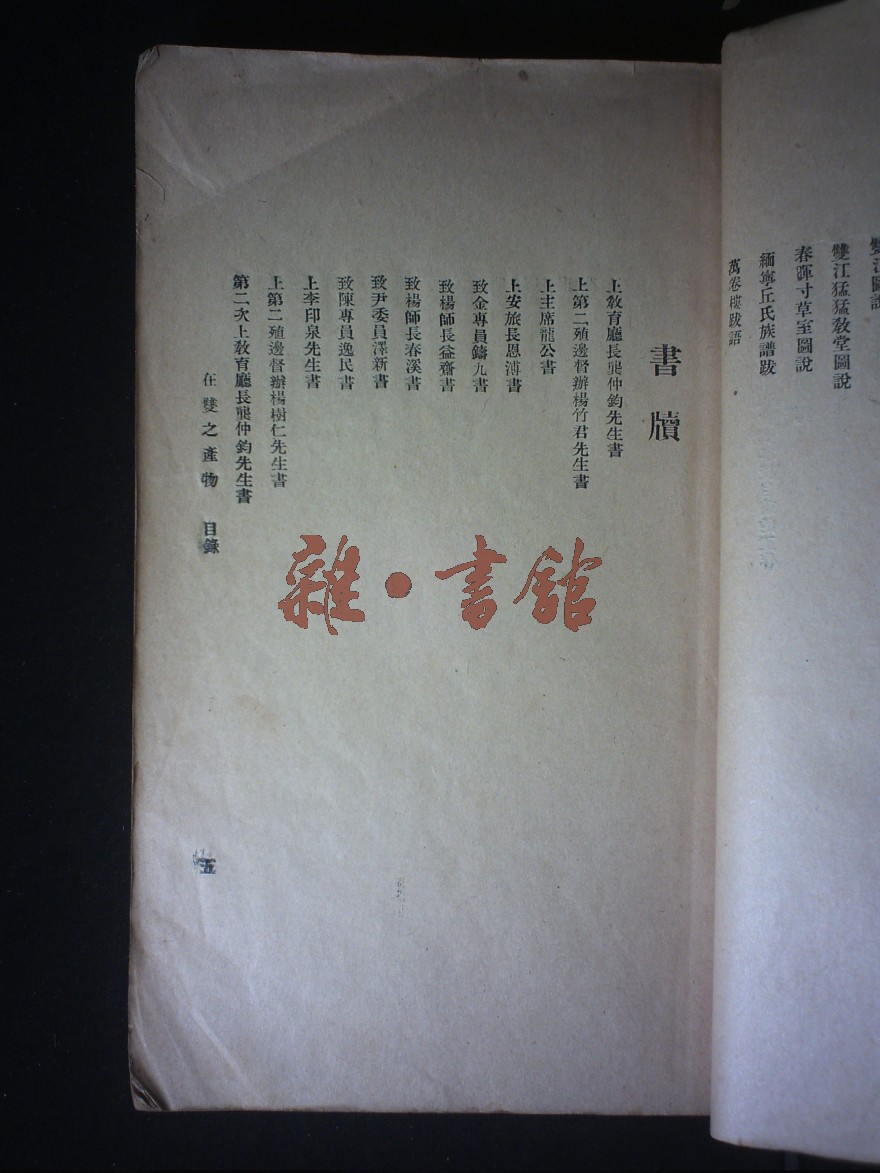 雙江圖說
雙江猛猛教堂圖說
春暉寸草室圖說
緬寧丘氏族譜跋
萬卷樓跋語
書牘
上教育廳長龔仲鈞先生書
上第二殖邊督辦楊竹君先生書
上主席龍公書
上安旅長恩溥書
致金專員鑄九書
致楊師長益齋書
致楊師長春溪書
致尹委員澤新書
致陳專員逸民書
上李印泉先生書
上第二殖邊督辦楊樹仁先生書
第二次上教育廳長龔仲鈞先生書
在雙之產物 目錄
五
雜·書館